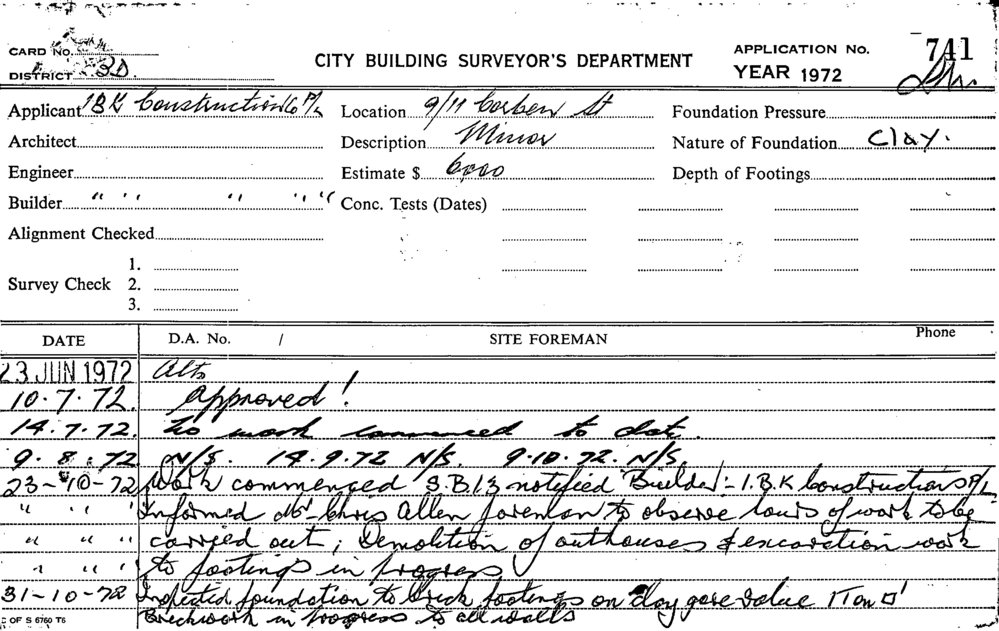 CARD No.
DISTRICT 3D.
CITY BUILDING SURVEYOR'S DEPARTMENT
APPLICATION No. 741
YEAR 1972
Applicant I.B.K Construction Co P/L Location 9/11 Corben St Foundation Pressure
Architect Description Minor Nature of Foundation Clay.
Engineer Estimate $ 6000 Depth of Footings
Builder " " " " " Conc. Tests (Dates)
Alignment Checked
1.
Survey Check 2.
3.
DATE D.A. No. / SITE FOREMAN Phone
23 JUN 1972 Alts
10.7.72. Approved!
14.7.72. No work commenced to date.
9.8.72 N/S. 14.9.72 N/S. 9.10.72. N/S.
23-10-72 Work commenced S.B.13 notified Builder:- I.B.K Constructions P/L
" " " Informed Mr Chris Allen foreman to observe hours of work to be
" " " carried out; Demolition of outhouses & excavation work
" " " to footings in progress
31-10-72 Inspected foundation to brick footings on clay gave value 1 Ton □'
Brickwork in progress to all walls
C OF S 6760 T6